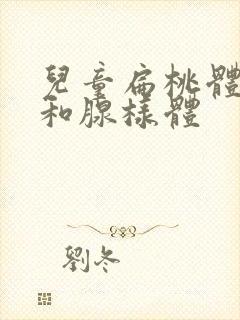 兒童扁桃體
和腺樣體
劉冬